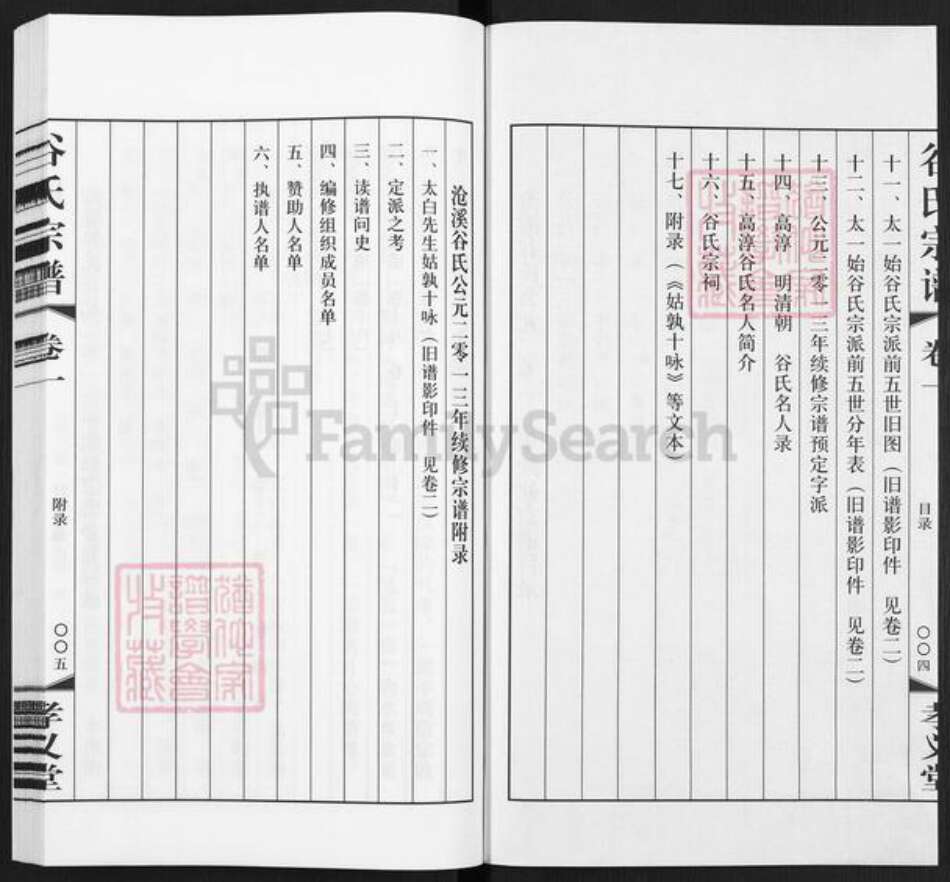 谷氏宗谱 卷一 目录 〇〇四 孝义堂
十一、太一始谷氏宗派前五世旧图（旧谱影印件 见卷二）
十二、太一始谷氏宗派前五世分年表（旧谱影印件 见卷二）
十三、公元二零一三年续修宗谱预定字派
十四、高淳 明清朝 谷氏名人录
十五、高淳谷氏名人简介
十六、谷氏宗祠
十七、附录（《姑孰十咏》等文本）
沧溪谷氏公元二零一三年续修宗谱附录
一、太白先生姑孰十咏（旧谱影印件 见卷二）
二、定派之考
三、读谱问史
四、编修组织成员名单
五、赞助人名单
六、执谱人名单
谷氏宗谱 卷一 附录 〇〇五 孝义堂
FamilySearch